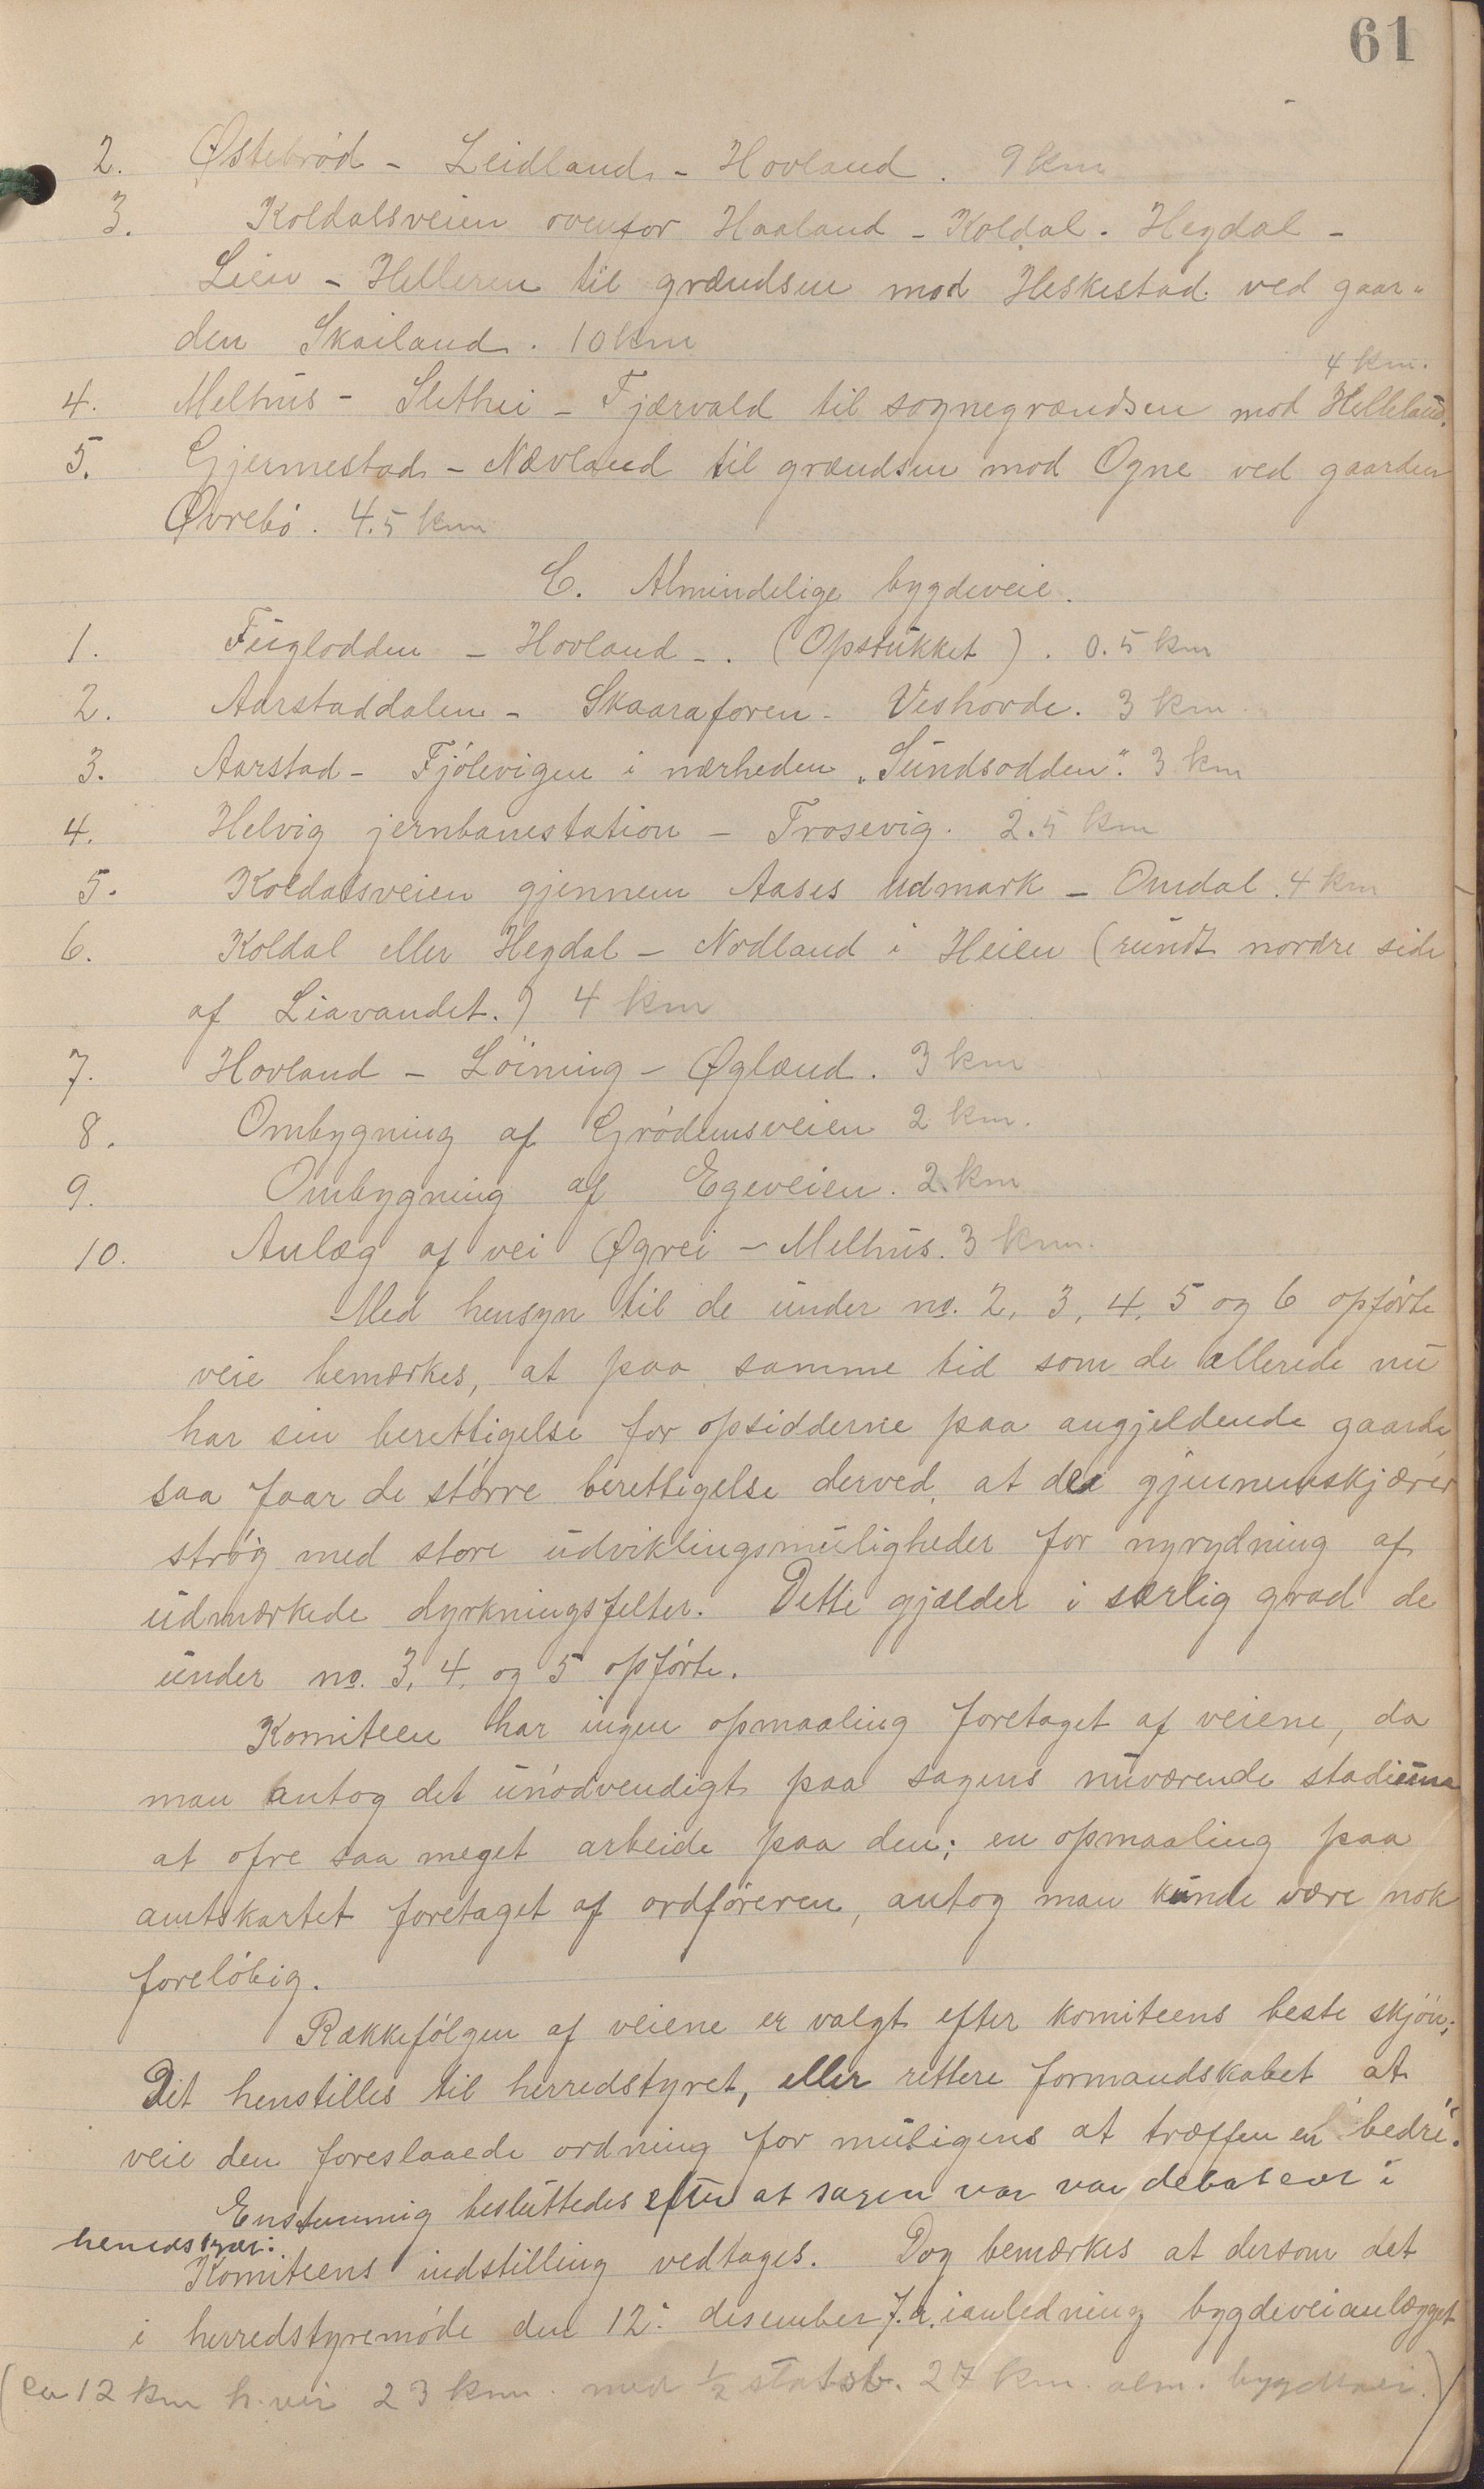 61
2. Østebrød - Leidland - Hovland. 9 km
3. Koldalsveien ovenfor Haaland - Koldal - Hegdal -
Lien - Helleren til grændsen mod Heskestad ved gaar-
den Skailand. 10 km
4 km.
4. Melhus - Slethei - Fjærvald til sognegrændsen mod Helleland.
5. Gjermestad - Nævland til grændsen mod Ogne ved gaarden
Øvrebø. 4.5 km
C. Almindelige bygdeveie.
1. Fuglodden - Hovland -. (Opstukket). 0.5 km
2. Aarstaddalen - Skaaraforen - Veshovde. 3 km
3. Aarstad - Fjölevigen i nærheden „Sundsodden". 3 km
4. Helvig jernbanestation - Trosevig. 2.5 km
5. Koldalsveien gjennem Aases udmark - Omdal. 4 km
6. Koldal eller Hegdal - Nodland i Heien (rundt nordre side
af Liavandet.) 4 km
7. Hovland - Löining - Øglænd. 3 km
8. Ombygning af Grødemsveien 2 km.
9. Ombygning af Egeveien. 2. km
10. Anlæg af vei Øgrei - Melhus. 3 km.
Med hensyn til de under no. 2, 3, 4, 5 og 6 opförte
veie bemærkes, at paa samme tid som de allerede nu
har sin berettigelse for opsidderne paa angjeldende gaarde,
saa faar de större berettigelse derved, at de gjennemskjærer
strög med store udviklingsmuligheder for nyrydning af
udmærkede dyrkningsfelter. Dette gjælder i særlig grad de
under no. 3, 4, og 5 opförte.
Komiteen har ingen opmaaling foretaget af veiene, da
man antog det unödvendigt paa sagens nuværende stadium
at ofre saa meget arbeide paa den; en opmaaling paa
amtskartet foretaget af ordföreren, antog man kunde være nok
forelöbig.
Rækkefölgen af veiene er valgt efter komiteens beste skjön;
Det henstilles til herredstyret, eller rettere formandskabet at
veie den foreslaaede ordning for muligens at træffen en bedre.
Enstemmig besluttedes efter at sagen var var debateret i
herredstyret:
Komiteens indstilling vedtages. Dog bemærkes at dersom det
i herredstyremöde den 12. desember f.a. ianledning bygdeveianlægget
(ca 12 km h.vei 23 km. med ½ statsb. 27 km. alm. bygdevei.)